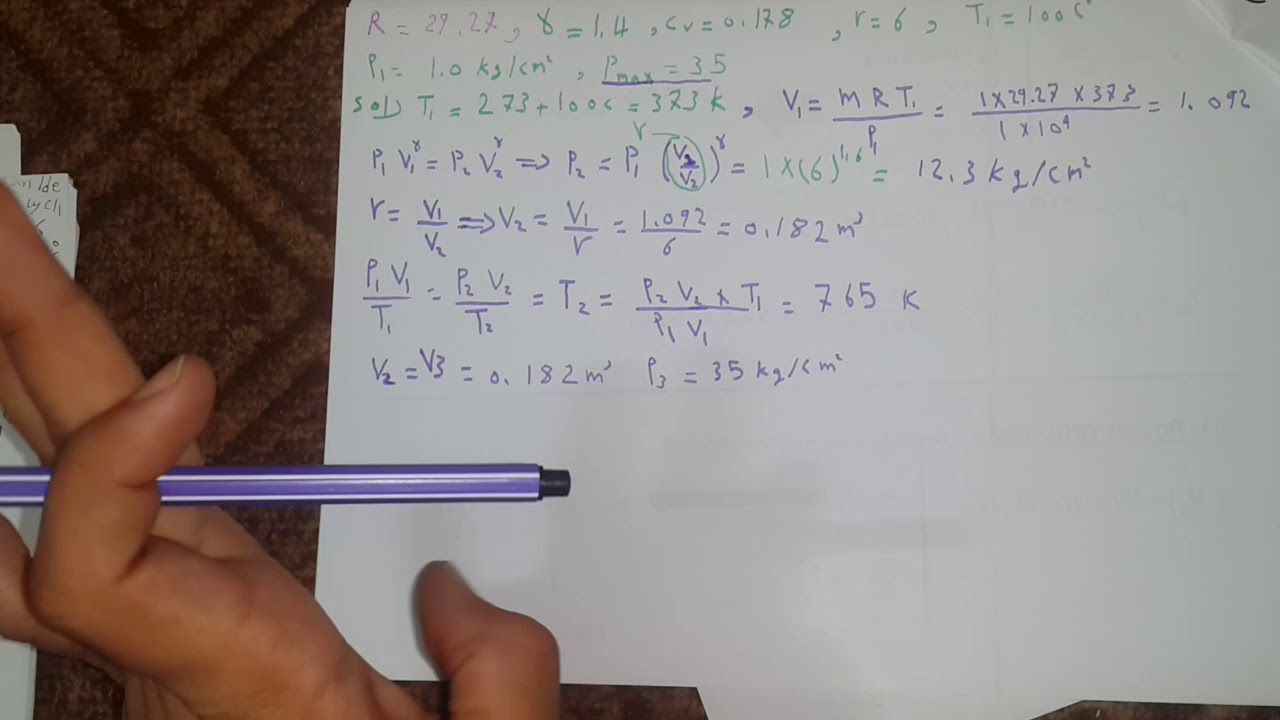 R = 29.27, γ = 1.4, cv = 0.178, r = 6, T₁ = 100 c°
P₁ = 1.0 kg/cm², Pmax = 35
sol) T₁ = 273 + 100c = 373 k, V₁ = m R T₁ / P₁ = 1 x 29.27 x 373 / 1 x 10⁴ = 1.092
r
P₁ V₁^γ = P₂ V₂^γ => P₂ = P₁ (V₂/V₂)^γ = 1 x (6)^1.4 = 12.3 kg/cm²
r = V₁/V₂ => V₂ = V₁/r = 1.092/6 = 0.182 m³
P₁ V₁ / T₁ = P₂ V₂ / T₂ = T₂ = P₂ V₂ x T₁ / P₁ V₁ = 765 K
V₂ = V3 = 0.182 m³ P₃ = 35 kg/cm²